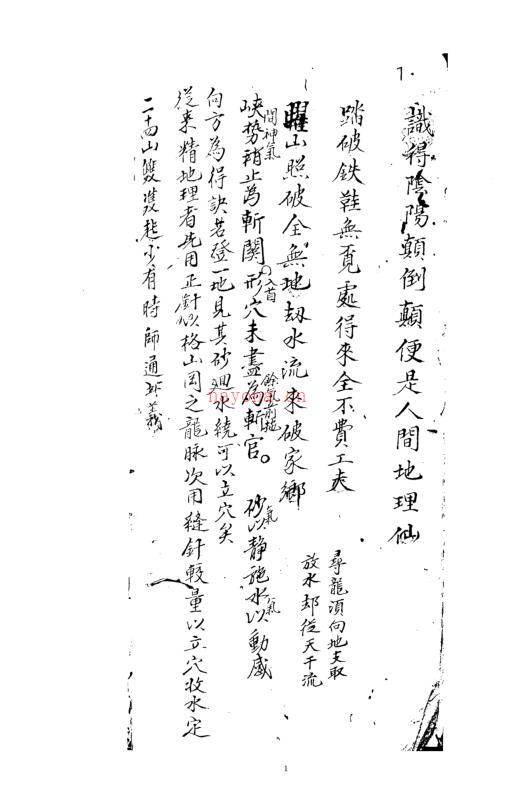 7.
識得陰陽顛倒顛便是人間地理仙
踏破鉄鞋無覓處得來全不費工夫
尋龍須向地支取
放水却從天干流
曜山照破全無地劫水流來破家鄉
問神氣
入首
餘氣
峽勢稍止為斬關形穴未盡為斬官。砂以静施水以動感
氣
氣
向方為得訣若登一地見其砂廻水繞可以立穴矣
從来精地理者先用正針以格山岡之龍脉次用縫針較量以立穴收水定
二十四山雙雙起少有時師通此義
nayona.cn
1